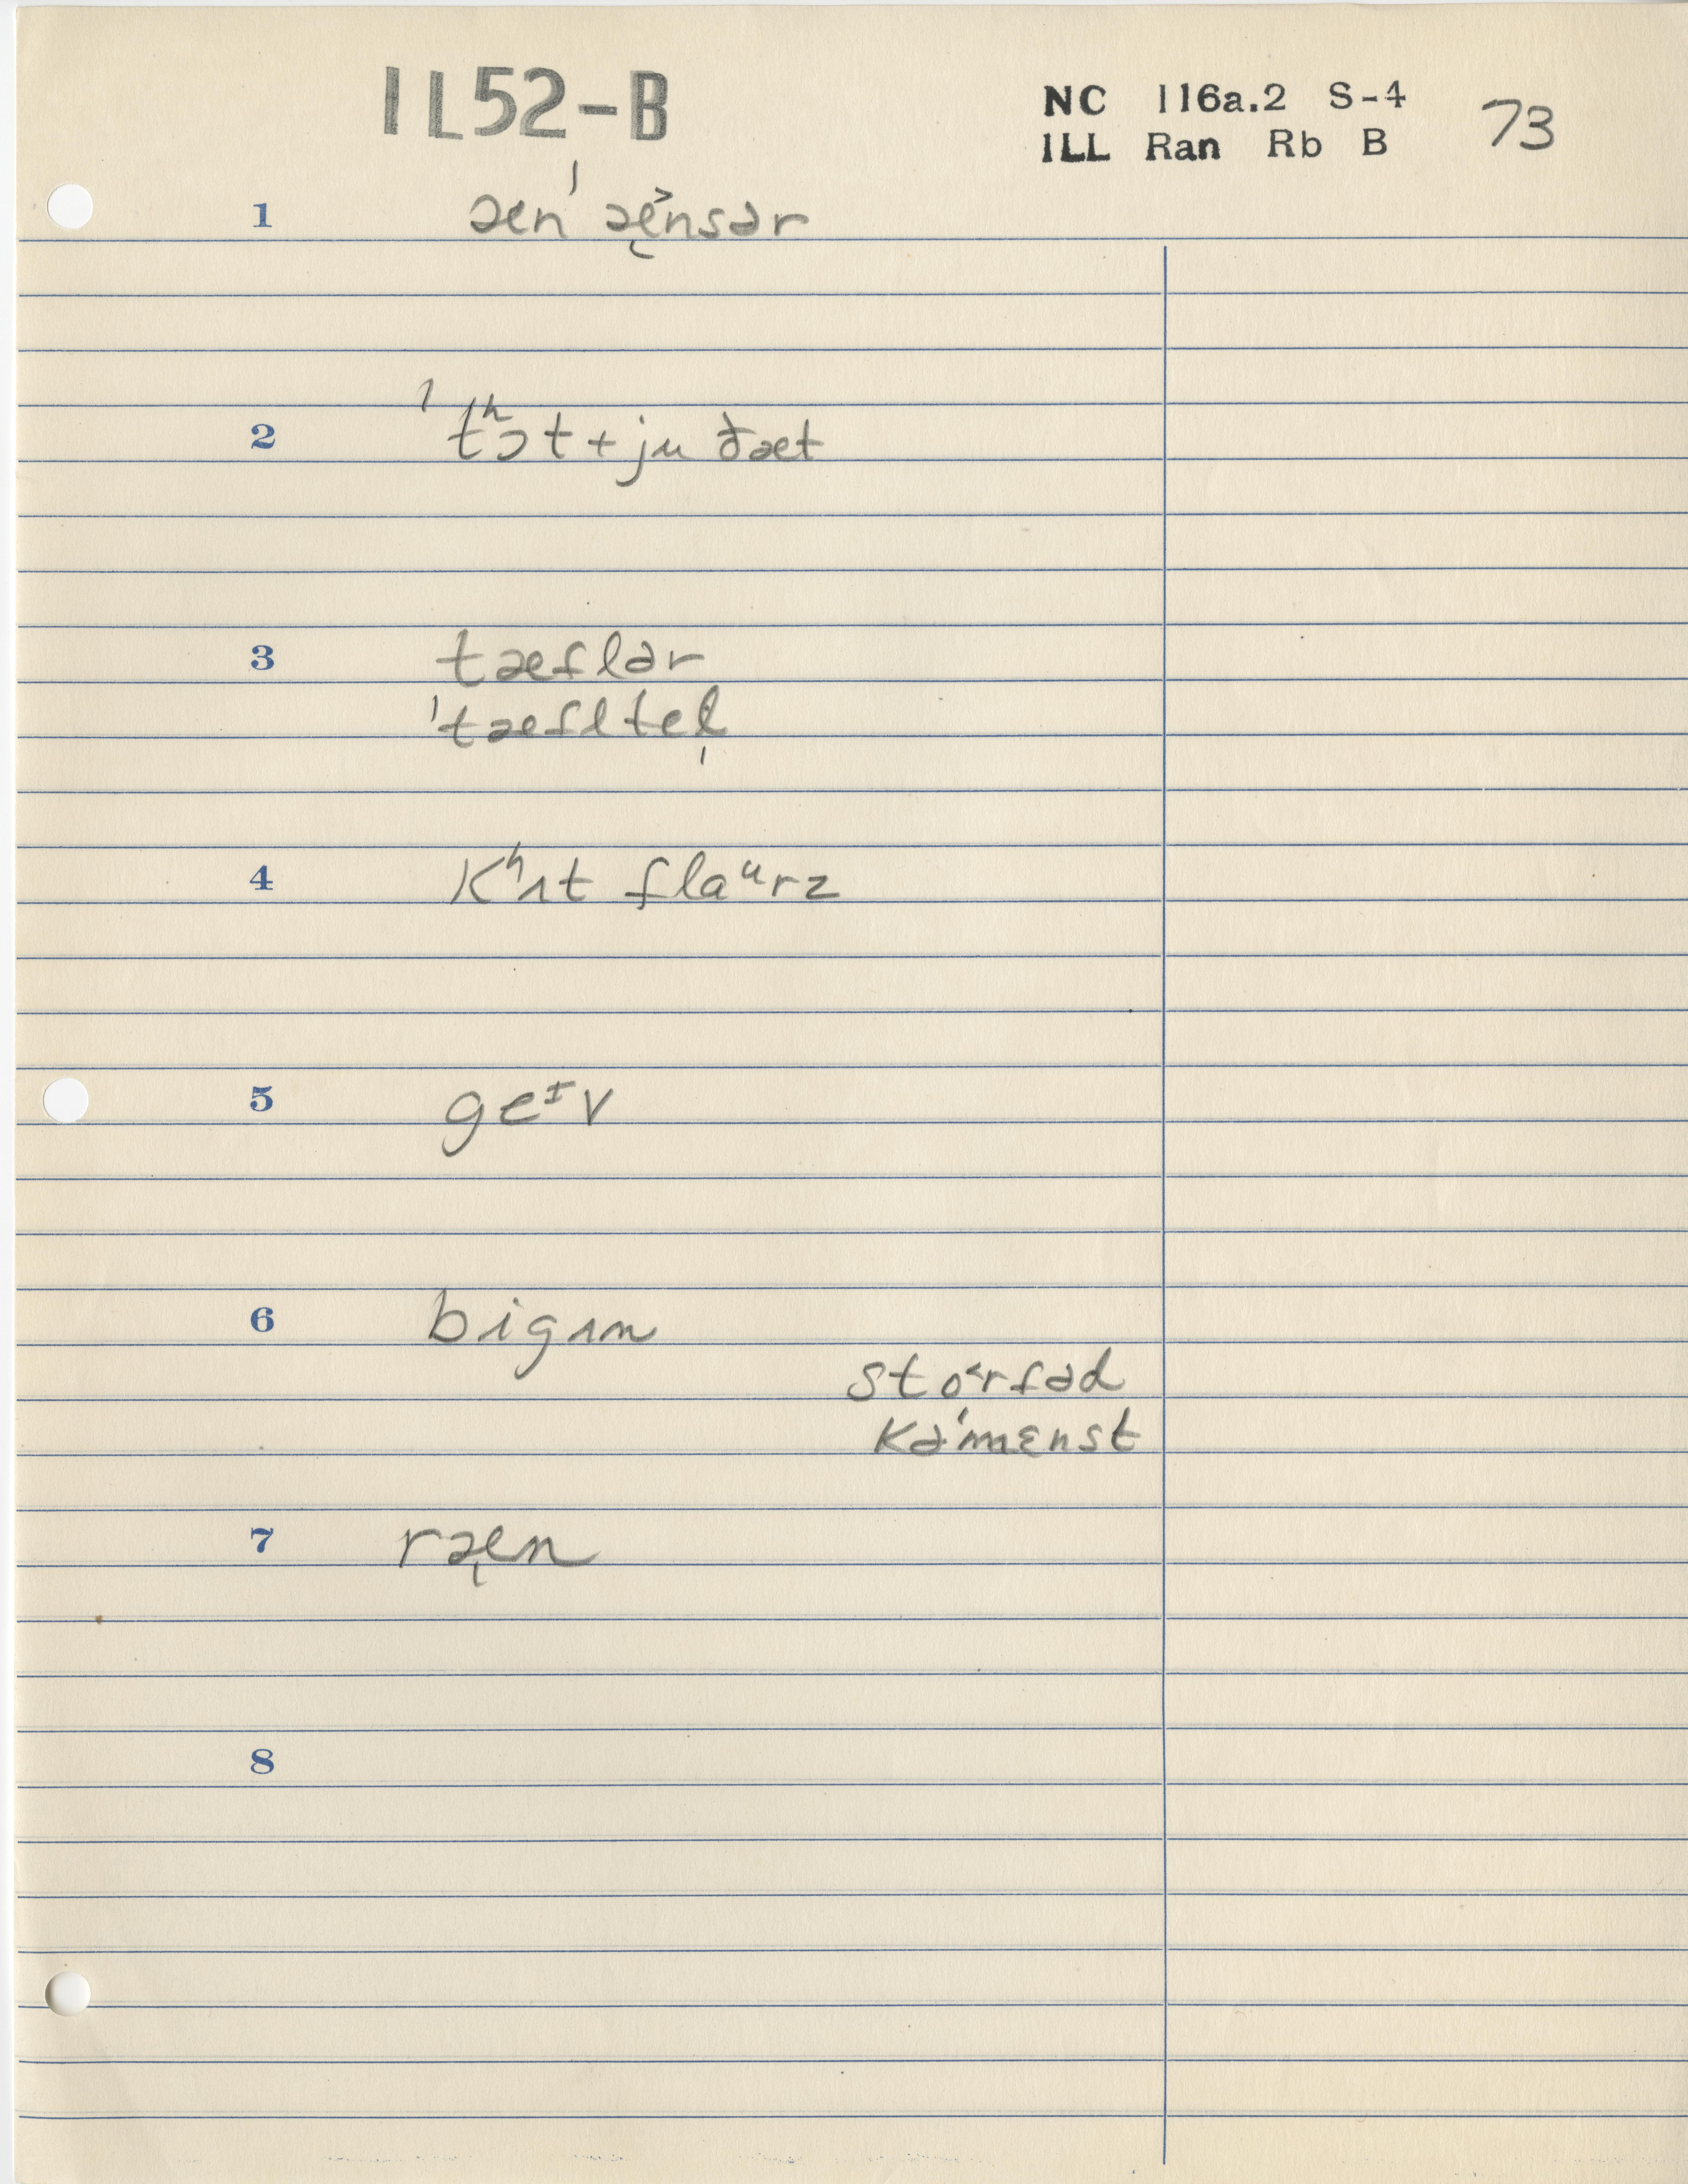 1L52-B
NC 116a.2 S-4 73
ILL Ran Rb B
1 æn ˈæ̨˃nsər
2 ˈtʰɔt + ju ðæt
3 tæflər
ˈtæfl tel̩
4 Kʰʌt flaᵘrz
5 geᶦv
6 bigʌn
sto˂rfəd
Kəˈmɛnst
7 ræ̨n
8